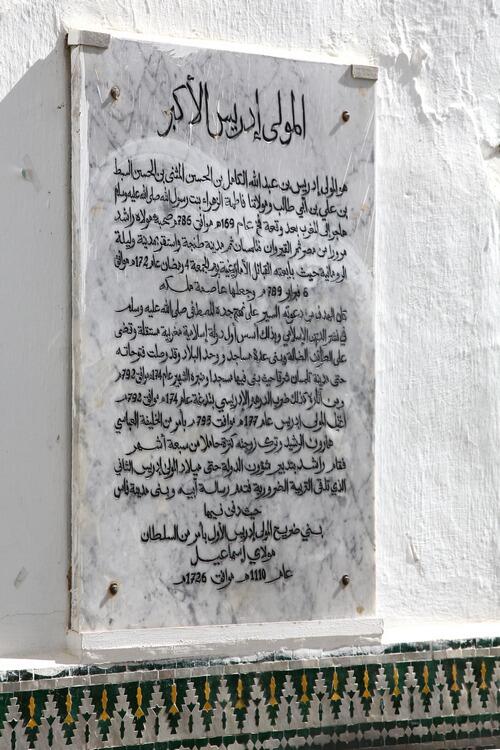 المولى إدريس الأكبر
هو المولى إدريس بن عبد الله الكامل بن الحسن المثنى بن الحسن السبط
بن علي بن أبي طالب ومولاتنا فاطمة الزهراء بنت رسول الله صلى الله عليه وسلم
هاجر إلى المغرب بعد وقعة فخ عام 169هـ موافق 786م وصحبه مولاه راشد
مرورا من مصر ثم القيروان تلمسان ثم مدينة طنجة واستقر بمدينة وليلة
الرومانية حيث بايعته القبائل الأمازيغية يوم الجمعة 4 رمضان عام 172هـ موافق
6 فبراير 789م وجعلها عاصمة ملكه
كان الهدف من دعوته السير على نهج جده المصطفى صلى الله عليه وسلم
في نشر الدين الإسلامي وبذلك أسس أول دولة إسلامية مغربية مستقلة وقضى
على الطوائف الضالة وبنى عدة مساجد ووحد البلاد وقد وصلت فتوحاته
حتى مدينة تلمسان شرقا حيث بنى فيها مسجدا ومنبره الشهير عام 174هـ موافق 792م
ومن آثاره كذلك ضرب الدرهم الإدريسي بتدغة عام 174هـ موافق 792م
اغتيل المولى إدريس عام 177هـ موافق 793م بأمر من الخليفة العباسي
هارون الرشيد وترك زوجته كنزة حاملا من سبعة أشهر
فقام راشد بتدبير شؤون الدولة حتى ميلاد المولى إدريس الثاني
الذي تلقى التربية الضرورية فتمم رسالة أبيه وبنى مدينة فاس
حيث دفن فيها
بني ضريح المولى إدريس الأول بأمر من السلطان
مولاي إسماعيل
عام 1110هـ موافق 1726م